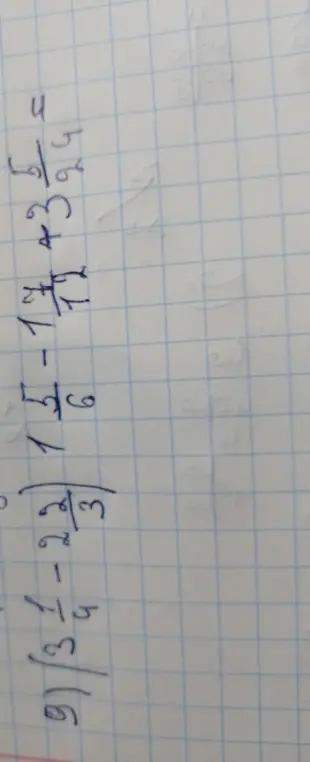 9) (3 1/4 - 2 2/3) 1 5/6 - 1 7/12 + 3 5/24 =